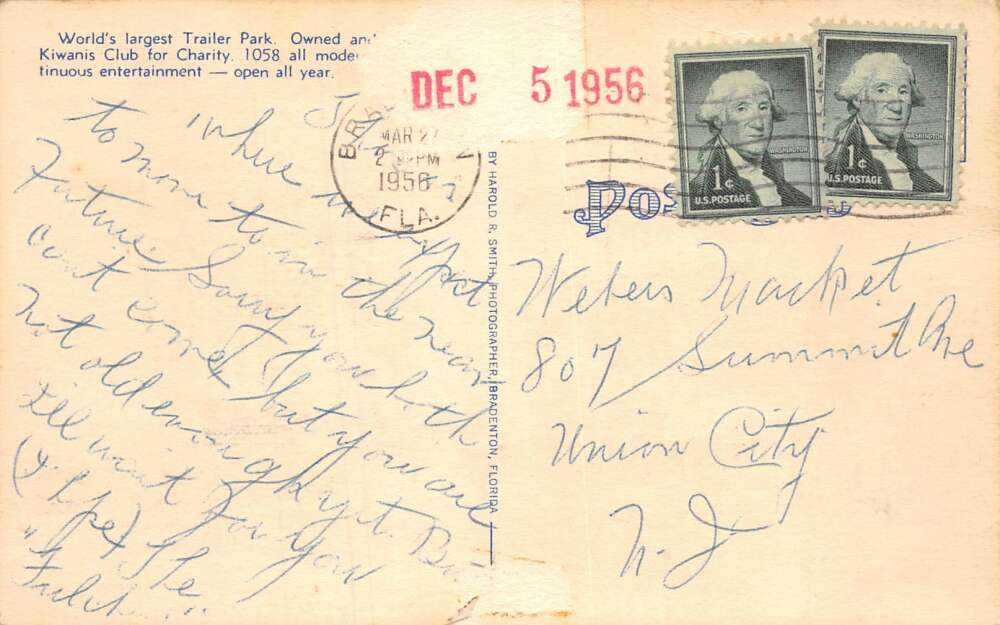 World's largest Trailer Park. Owned an
Kiwanis Club for Charity. 1058 all mode
tinuous entertainment — open all year.
DEC 5 1956
MAR 27
PM
1956
FLA.
WASHINGTON
1¢
U.S. POSTAGE
WASHINGTON
1¢
U.S. POSTAGE
POS
BY HAROLD R. SMITH, PHOTOGRAPHER, BRADENTON, FLORIDA
where we expect
to move to in the near
Future Sorry you both
cant come, but you are
not old enough yet. But
Ill wait for you
(I hpe) The
Webers Market
807 Summit Ave
Union City
N. J